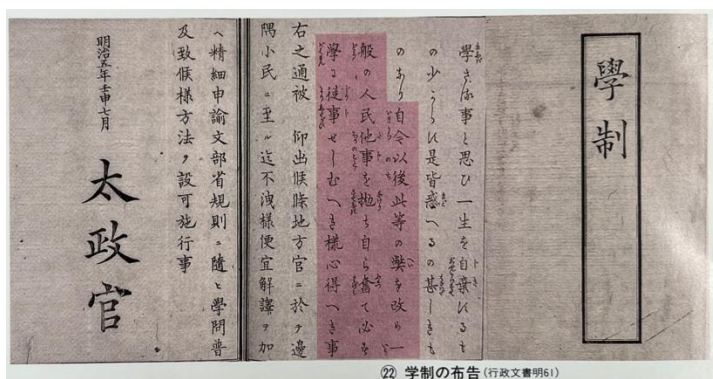 學制
學さる事と思ひ一生を自棄するも
の少からす是皆惑へるの甚しきも
のあり自今以後此等の弊を改め一
般の人民他事を抛ち自ら奮て必す
學に従事せしむへき様心得へき事
右之通被 仰出候條地方官ニ於テ邊
隅小民ニ至ル迄不洩様便宜解譯ヲ加
ヘ精細申諭文部省規則ニ隨ヒ學問普
及致候様方法ヲ設可施行事
明治五年壬申七月
太政官
㉒ 学制の布告(行政文書明61)